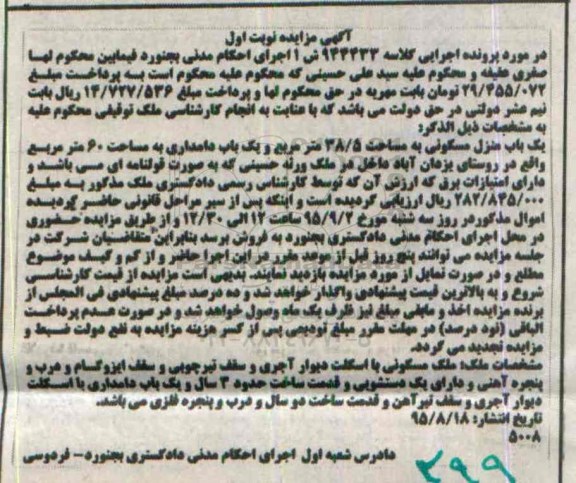 آگهی مزایده نوبت اول
در مورد پرونده اجرایی کلاسه ۹۴۳۴۳۳ ش ۱ اجرای احکام مدنی بجنورد فیمابین محکوم لها
صغری عفیفه و محکوم علیه سید علی حسینی که محکوم علیه محکوم است به پرداخت مبلغ
۲۹/۴۵۵/۰۷۲ تومان بابت مهریه در حق محکوم لها و پرداخت مبلغ ۱۴/۷۲۷/۵۳۶ ریال بابت
نیم عشر دولتی در حق دولت می باشد که با عنایت به انجام کارشناسی ملک توقیفی محکوم علیه
به مشخصات ذیل الذکر:
یک باب منزل مسکونی به مساحت ۳۸/۵ متر مربع و یک باب دامداری به مساحت ۶۰ متر مربع
واقع در روستای یزدان آباد داخل در ملک ورثه حسینی که به صورت قولنامه ای می باشد و
دارای امتیازات برق که ارزش آن که توسط کارشناس رسمی دادگستری ملک مذکور به مبلغ
۲۸۲/۸۳۵/۰۰۰ ریال ارزیابی گردیده است و اینکه پس از سیر مراحل قانونی حاضر گردیده
اموال مذکور در روز سه شنبه مورخ ۹۵/۹/۲ ساعت ۱۲ الی ۱۲/۳۰ و از طریق مزایده حضوری
در محل اجرای احکام مدنی دادگستری بجنورد به فروش برسد بنابراین متقاضیان شرکت در
جلسه مزایده می توانند پنج روز قبل از موعد مقرر در این اجرا حاضر و از کم و کیف موضوع
مطلع و در صورت تمایل از مورد مزایده بازدید نمایند. بدیهی است مزایده از قیمت کارشناسی
شروع و به بالاترین قیمت پیشنهادی واگذار خواهد شد و ده درصد مبلغ پیشنهادی فی المجلس از
برنده مزایده اخذ و مابقی مبلغ نیز ظرف یک ماه وصول خواهد شد و در صورت عدم پرداخت
الباقی (نود درصد) در مهلت مقرر مبلغ تودیعی پس از کسر هزینه مزایده به نفع دولت ضبط و
مزایده تجدید می گردد.
مشخصات ملک: ملک مسکونی با اسکلت دیوار آجری و سقف تیرچوبی و سقف ایزوگام و درب و
پنجره آهنی و دارای یک دستشویی و قدمت ساخت حدود ۳ سال و یک باب دامداری با اسکلت
دیوار آجری و سقف تیرآهن و قدمت ساخت دو سال و درب و پنجره فلزی می باشد.
تاریخ انتشار: ۹۵/۸/۱۸
۵۰۰۸
دادرس شعبه اول اجرای احکام مدنی دادگستری بجنورد – فردوسی
۳۹۹